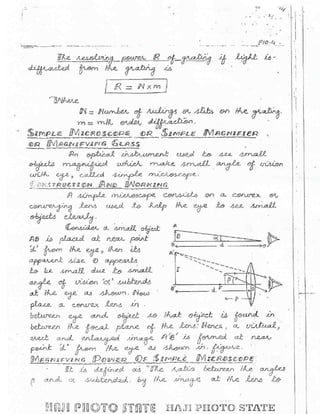 P10-4
The resolving power R of grating if light is-
diffracted from the grating is
R = N×m
Where
N = Number of rulings or slits on the grating.
m = mth order diffraction.
SIMPLE MICROSCOPE OR SIMPLE MAGNIFIER
OR MAGNIFYING GLASS
An optical instrument used to see small
objects magnified which make small angle of vision
with eye, called simple microscope.
CONSTRUCTION AND WORKING
A simple microscope consists on a convex or
converging lens used to help the eye to see small
objects clearly.
Consider a small object
AB is placed at near point
'd' from the eye, then its
apparent size D appears
to be small due to small
angle of vision 'α' subtends
at the eye as shown. Now
place a convex lens in
between eye and object so that object is found in
between the focal plane of the lens. Hence, a virtual,
erect and enlarged image A'B' is formed at near
point 'd' from the eye as shown in figure.
MAGNIFYING POWER OF SIMPLE MICROSCOPE
It is defined as "The ratio between the angles
β and α subtended by the image at the lens to
HAJI PHOTO STATE HAJI PHOTO STATE